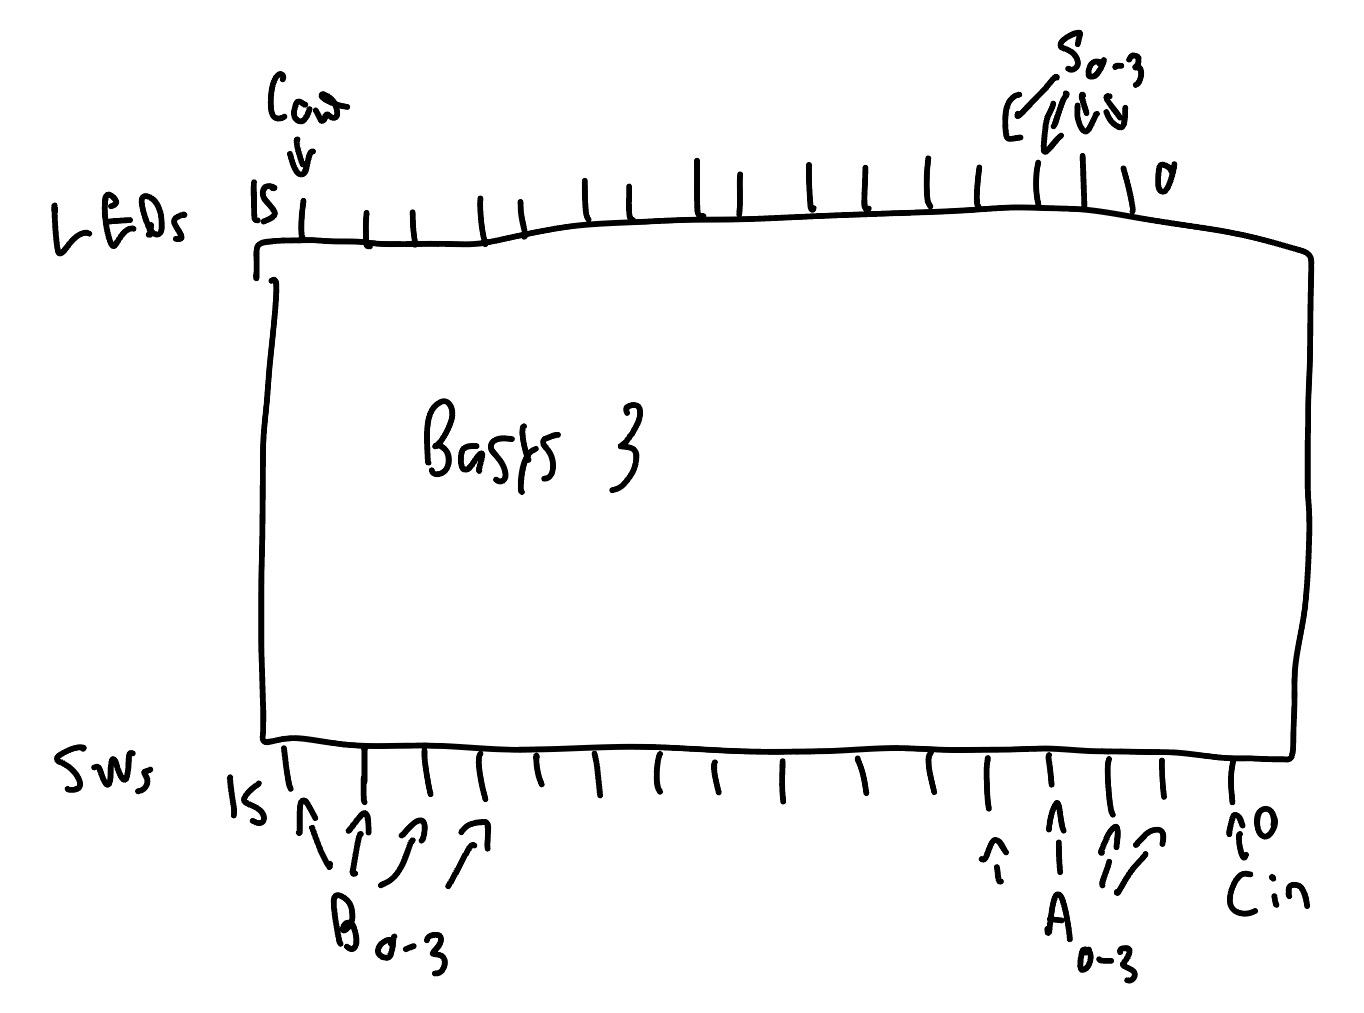 S0-3
Cout
LEDs 15 0
Basys 3
SWs 15 0
B0-3 A0-3 Cin